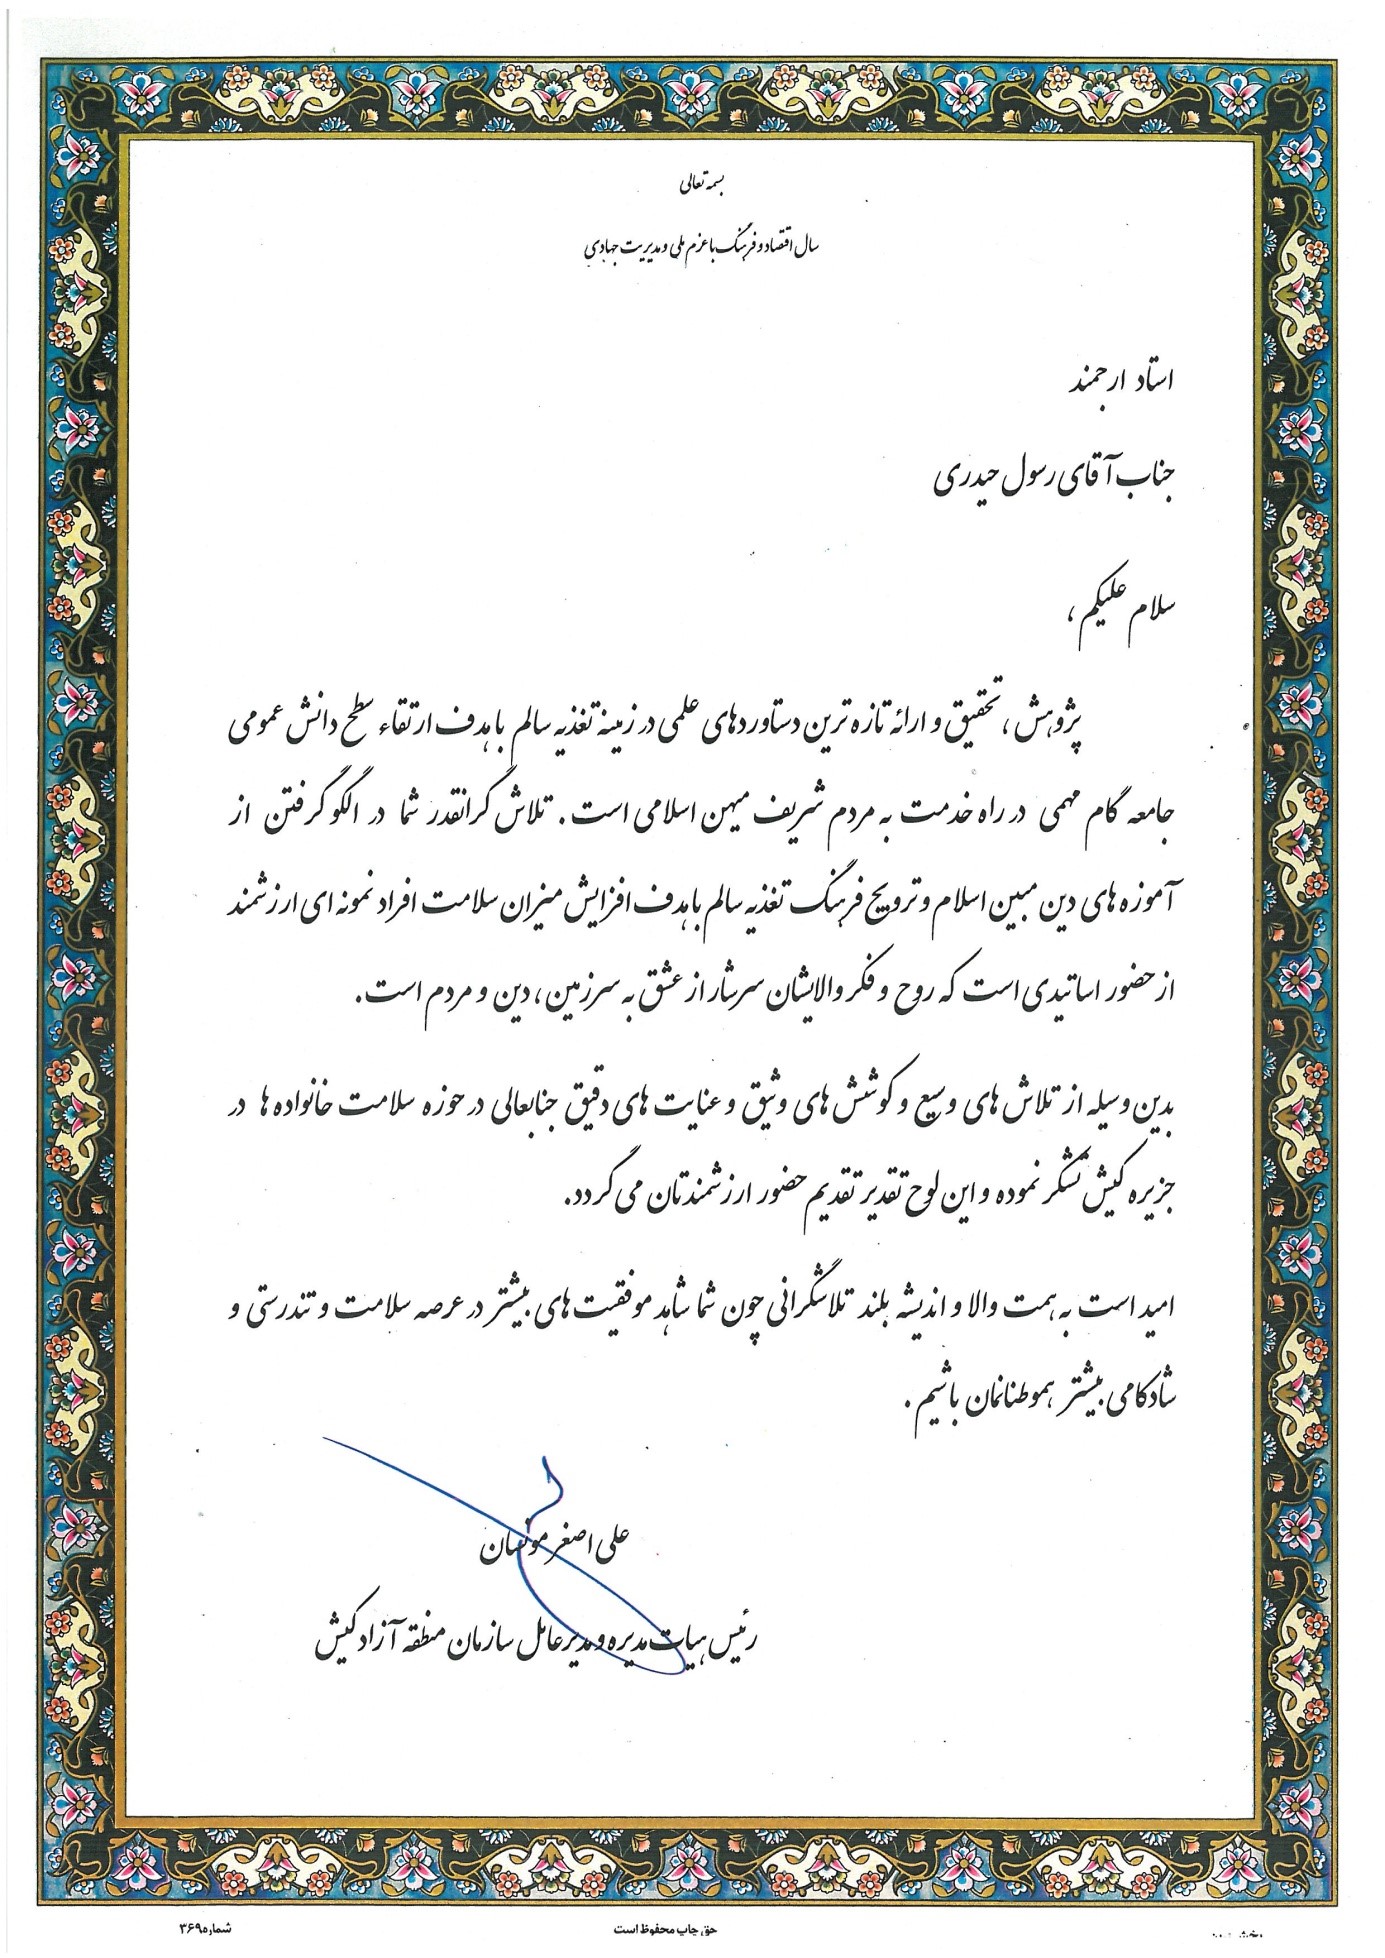 بسمه تعالی
سال اقتصاد و فرهنگ با عزم ملی و مدیریت جهادی
استاد ارجمند
جناب آقای رسول حیدری
سلام علیکم ،
پژوهش ، تحقیق و ارائه تازه ترین دستاوردهای علمی در زمینه تغذیه سالم با هدف ارتقاء سطح دانش عمومی
جامعه گام مهمی در راه خدمت به مردم شریف میهن اسلامی است . تلاش گرانقدر شما در الگو گرفتن از
آموزه های دین مبین اسلام و ترویج فرهنگ تغذیه سالم با هدف افزایش میزان سلامت افراد نمونه ای ارزشمند
از حضور اساتیدی است که روح و فکر والایشان سرشار از عشق به سرزمین ، دین و مردم است .
بدین وسیله از تلاش های وسیع و کوشش های وثیق و عنایت های دقیق جنابعالی در حوزه سلامت خانواده ها در
جزیره کیش تشکر نموده و این لوح تقدیر تقدیم حضور ارزشمندتان می گردد .
امید است به همت والا و اندیشه بلند تلاشگرانی چون شما شاهد موفقیت های بیشتر در عرصه سلامت و تندرستی و
شادکامی بیشتر هموطنانمان باشیم .
علی اصغر مونسان
رئیس هیات مدیره و مدیرعامل سازمان منطقه آزاد کیش
حق چاپ محفوظ است
شماره ۳۶۹